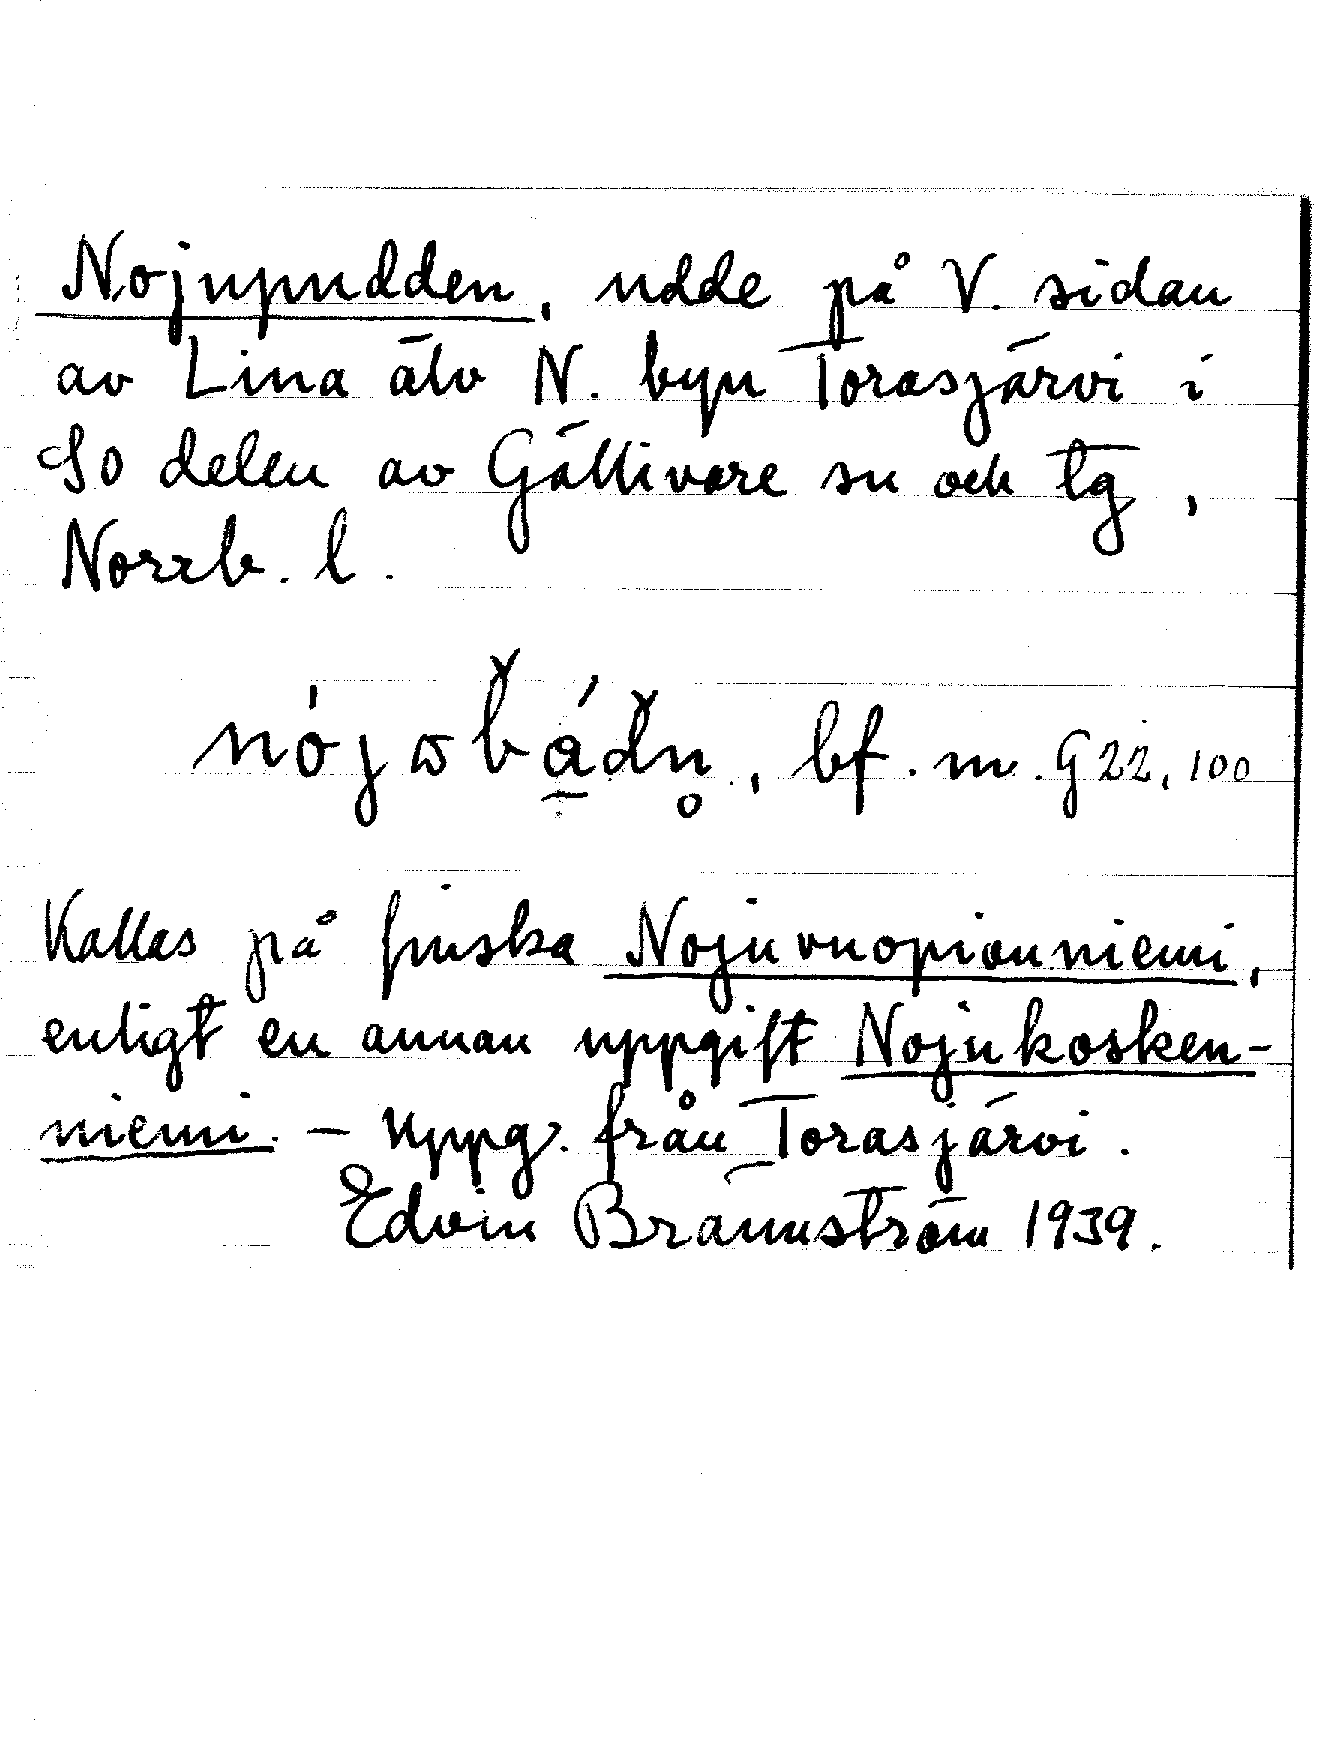 Nojnpudden, udde på V. sidan
av Lina älv N. byn Torasjärvi i
So delen av Gällivare sn och tg,
Norrb. l.
bf. m. G 22, 100
Kallas på finska Nojuvuopionniemi,
enligt en annan uppgift Nojukosken-
niemi. – Uppg. från Torasjärvi.
Edvin Brännström 1939.